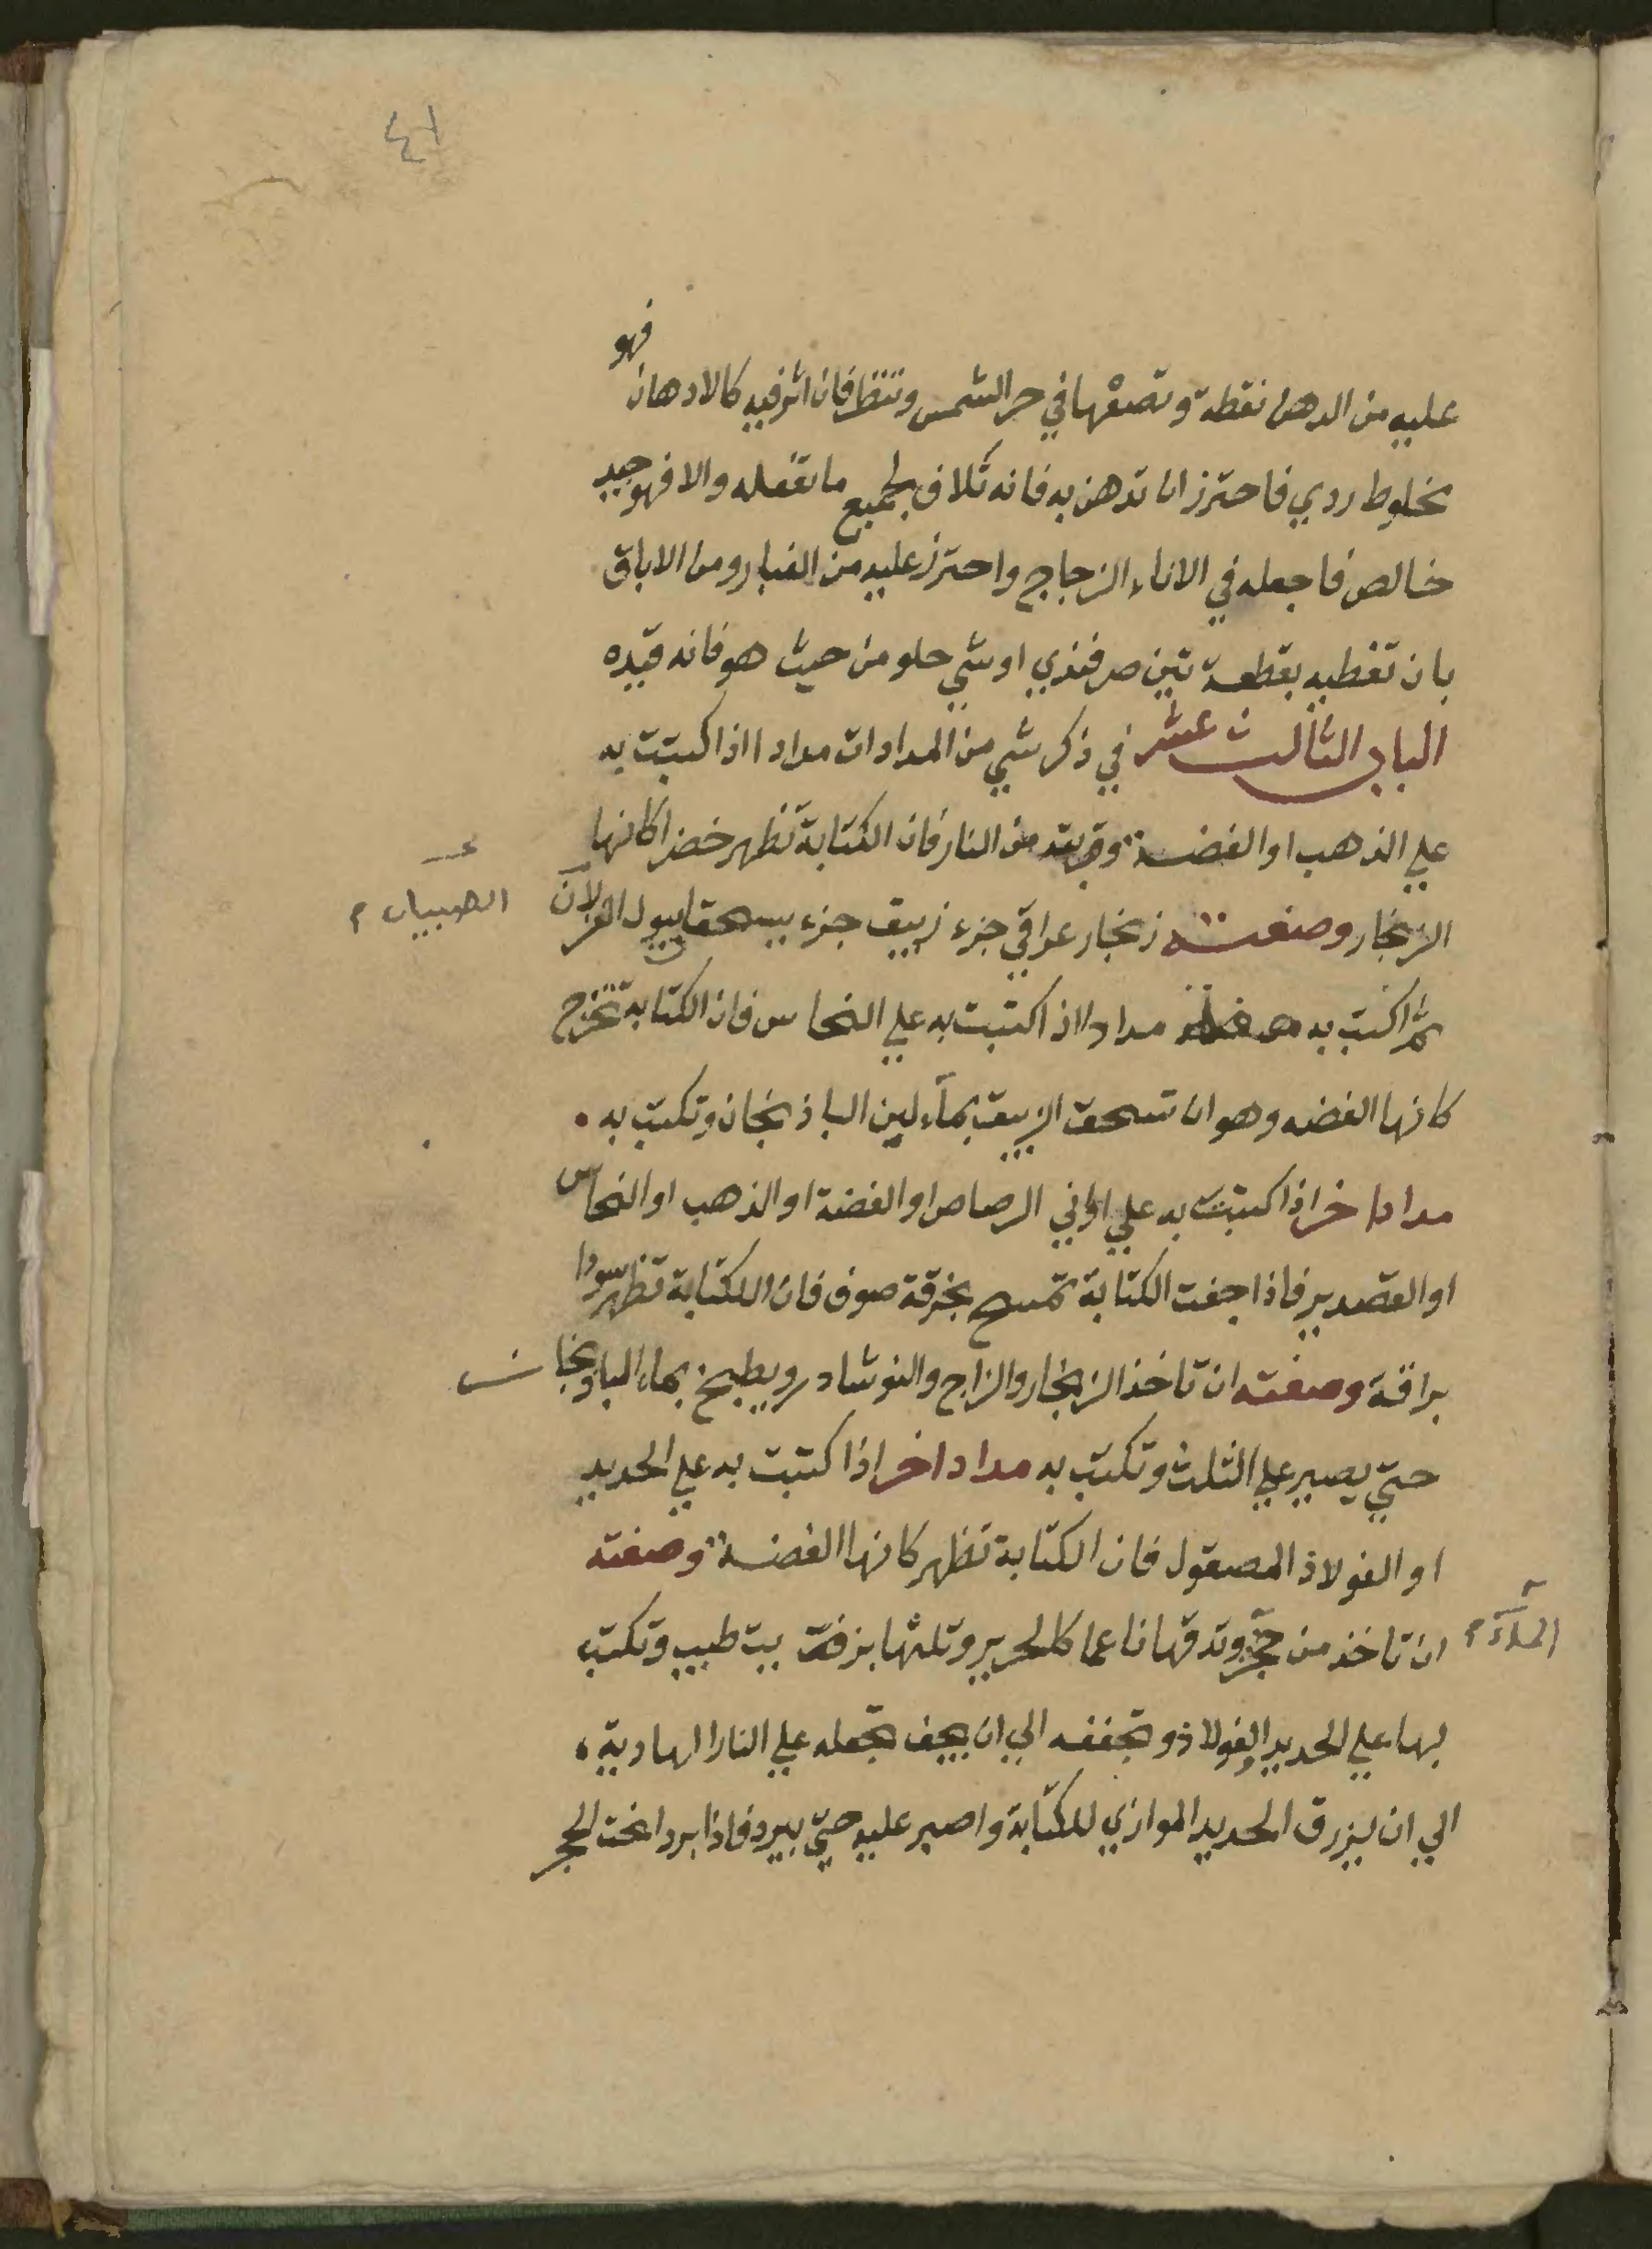 ٤١
عليه من الدهن نقطة وتضعها في حر الشمس وتنظر فان اثر فيه كالادهان فهو
مخلوط ردي فاحترز ان تدهن به فانه تلاف لجميع ما تفعله والا فهو جيد
خالص فاجعله في الاناء الزجاج واحترز عليه من الغبار ومن الاباق
بان تغطيه بقطعة تين صرفندي او شي حلو من حيث هو فانه قيده
الباب الثالث عشر في ذكر شي من المدادات مدادا اذا كتبت به
علي الذهب او الفضة وقربته من النار فان الكتابة تظهر خضرا كانها
الزنجار وصفته زنجار عراقي جزء زيبق جزء يسحقا ببول الغزلان
الصبيان م
ثم اكتب به مدادا اذا كتبت به علي النحاس فان الكتابة تخرج
كانها الفضه وهو ان تسحق الزيبق بماء لبن الباذنجان وتكتب به
مدادا اخر اذا كتبت به علي اواني الرصاص او الفضة او الذهب او النحاس
او القصدير فاذا جفت الكتابة تمسح بخرقة صوف فان الكتابة تظهر سودا
براقة وصفته ان تاخذ الزنجار والزاج والنوشادر ويطبخ بماء الباذنجان
حتي يصير علي الثلث وتكتب به مدادا اخر اذا كتبت به علي الحديد
او الفولاذ المصقول فان الكتابة تظهر كانها الفضة وصفته
ان تاخذ من حجر وتدقها ناعما كالحرير وتلتها بزفت بيت طبيب وتكتب
بها علي الحديد او الفولاذ وتجففه الي ان يجف تجعله علي النار الهادية
الي ان يزرق الحديد الموازي للكتابة واصبر عليه حتي يبرد فاذا برد انحت الحجر